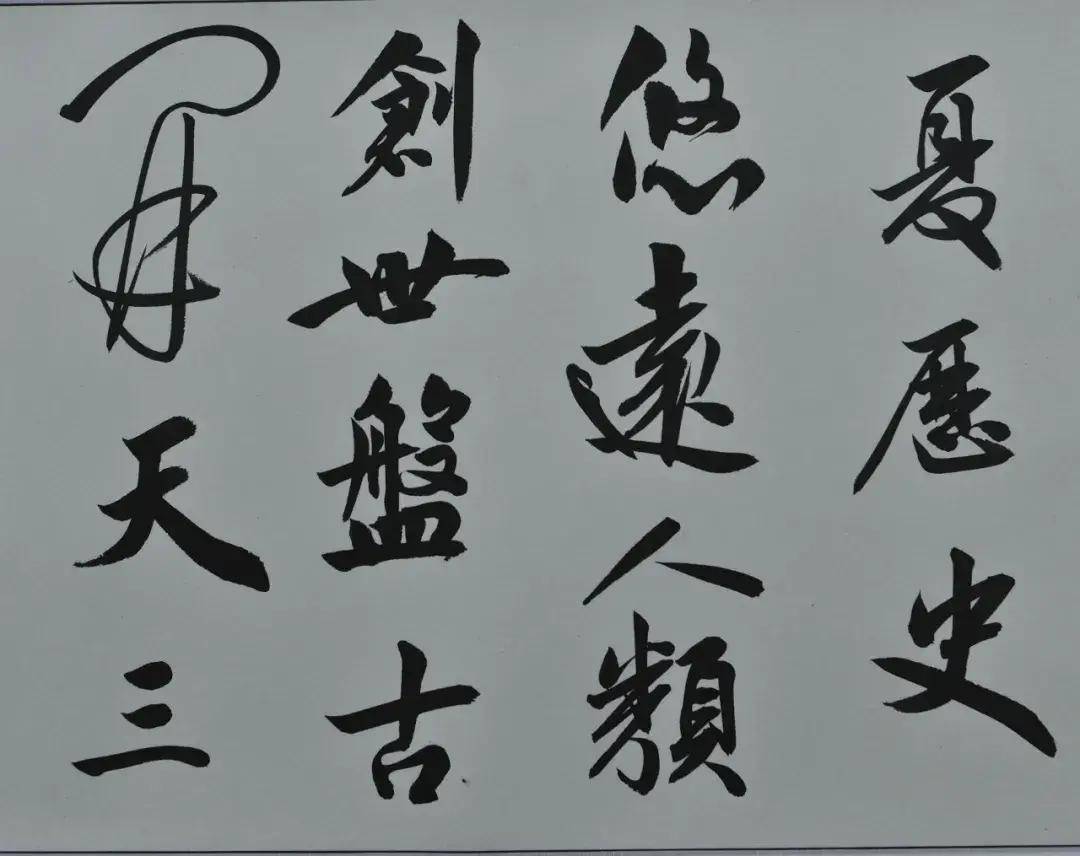 夏歷史
悠遠人類
創世盤古
開天三